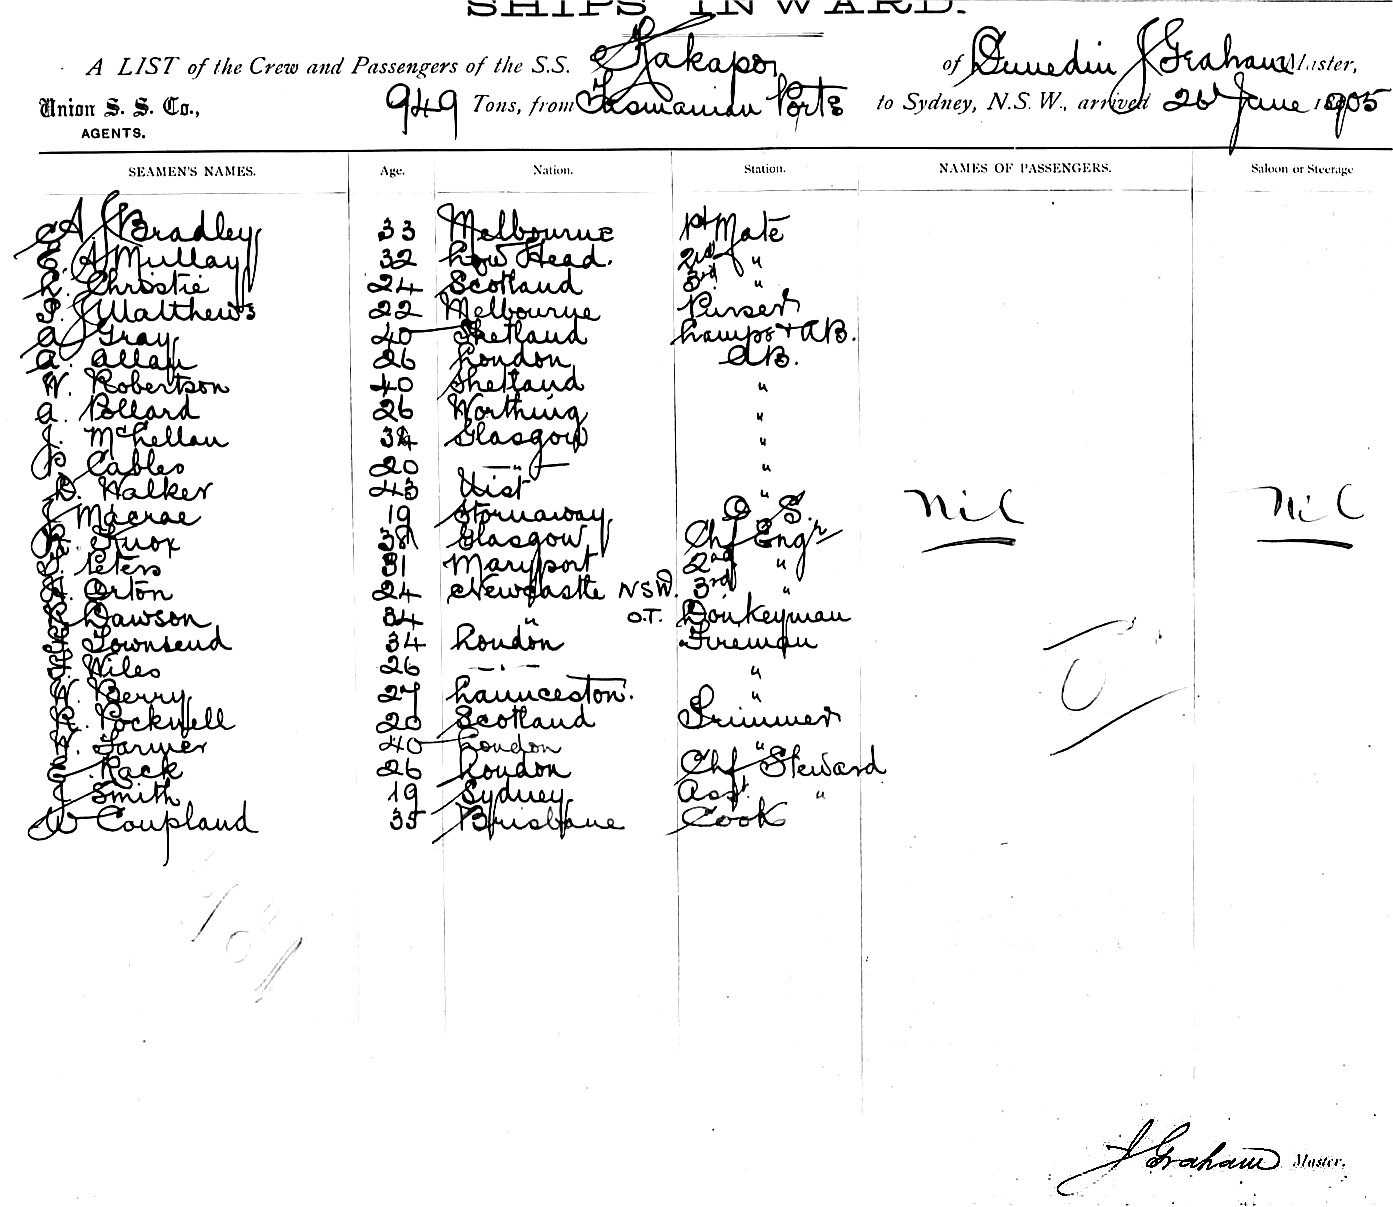 SHIPS INWARD.
A LIST of the Crew and Passengers of the S.S. Kakapo, of Dunedin J Graham Master,
Union S. S. Co., 949 Tons, from Tasmanian Ports to Sydney, N.S.W., arrived 26 June 1905
AGENTS.
SEAMEN'S NAMES. Age. Nation. Station. NAMES OF PASSENGERS. Saloon or Steerage
A J Bradley 33 Melbourne 1st Mate
E. A Mullay 32 how Head. 2nd "
L. Christie 24 Scotland 3rd "
S. J Matthews 22 Melbourne Purser
A Gray 40 Shetland Lamps + AB.
A. Allan 26 London AB.
W. Robertson 40 Shetland "
A. Pollard 26 Worthing "
J. McLellan 34 Glasgow "
P Cables 20 — " — "
D. Walker 43 Uist "
J Macrae 19 Stornaway O. S. Nil Nil
Knox 38 Glasgow Chf Engr
Peters 31 Maryport 2nd "
Orton 24 Newcastle NSW. 3rd "
Dawson 34 " O.T. Donkeyman
Townsend 34 London Fireman
Wiles 26 — " — "
W. Berry 27 Launceston. "
R. Rockwell 20 Scotland Trimmer
Farmer 40 London "
Rack 26 London Chf Steward
J Smith 19 Sydney Asst "
W Coupland 35 Brisbane Cook
J Graham Master.